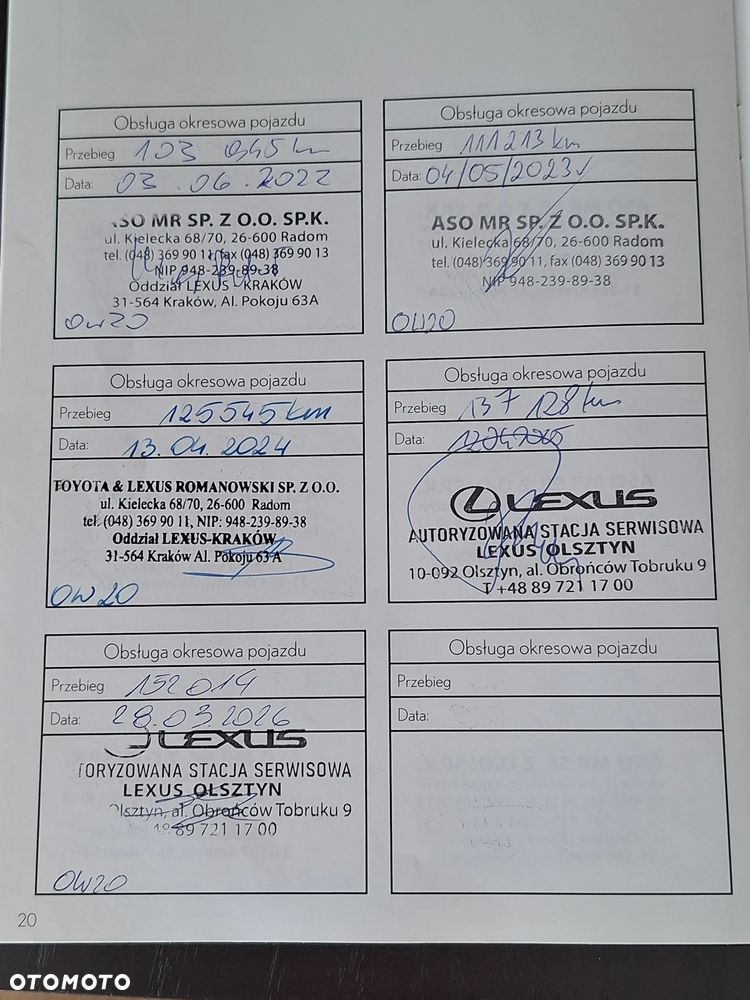 Obsługa okresowa pojazdu
Przebieg 103 045 km
Data: 03.06.2022
ASO MR SP. Z O.O. SP.K.
ul. Kielecka 68/70, 26-600 Radom
tel. (048) 369 90 11, fax (048) 369 90 13
NIP 948-239-89-38
Oddział LEXUS - KRAKÓW
31-564 Kraków, Al. Pokoju 63A
0W20
Obsługa okresowa pojazdu
Przebieg 111 213 km
Data: 04/05/2023
ASO MR SP. Z O.O. SP.K.
ul. Kielecka 68/70, 26-600 Radom
tel. (048) 369 90 11, fax (048) 369 90 13
NIP 948-239-89-38
0W20
Obsługa okresowa pojazdu
Przebieg 125545 km
Data: 13.04.2024
TOYOTA & LEXUS ROMANOWSKI SP. Z O.O.
ul. Kielecka 68/70, 26-600 Radom
tel. (048) 369 90 11, NIP: 948-239-89-38
Oddział LEXUS-KRAKÓW
31-564 Kraków Al. Pokoju 63 A
0W20
Obsługa okresowa pojazdu
Przebieg 137 128 km
Data:
LEXUS
AUTORYZOWANA STACJA SERWISOWA
LEXUS OLSZTYN
10-092 Olsztyn, al. Obrońców Tobruku 9
T +48 89 721 17 00
Obsługa okresowa pojazdu
Przebieg 152 014
Data: 28.03.2026
LEXUS
TORYZOWANA STACJA SERWISOWA
LEXUS OLSZTYN
Olsztyn, al. Obrońców Tobruku 9
48 89 721 17 00
0W20
Obsługa okresowa pojazdu
Przebieg
Data:
20
OTOMOTO